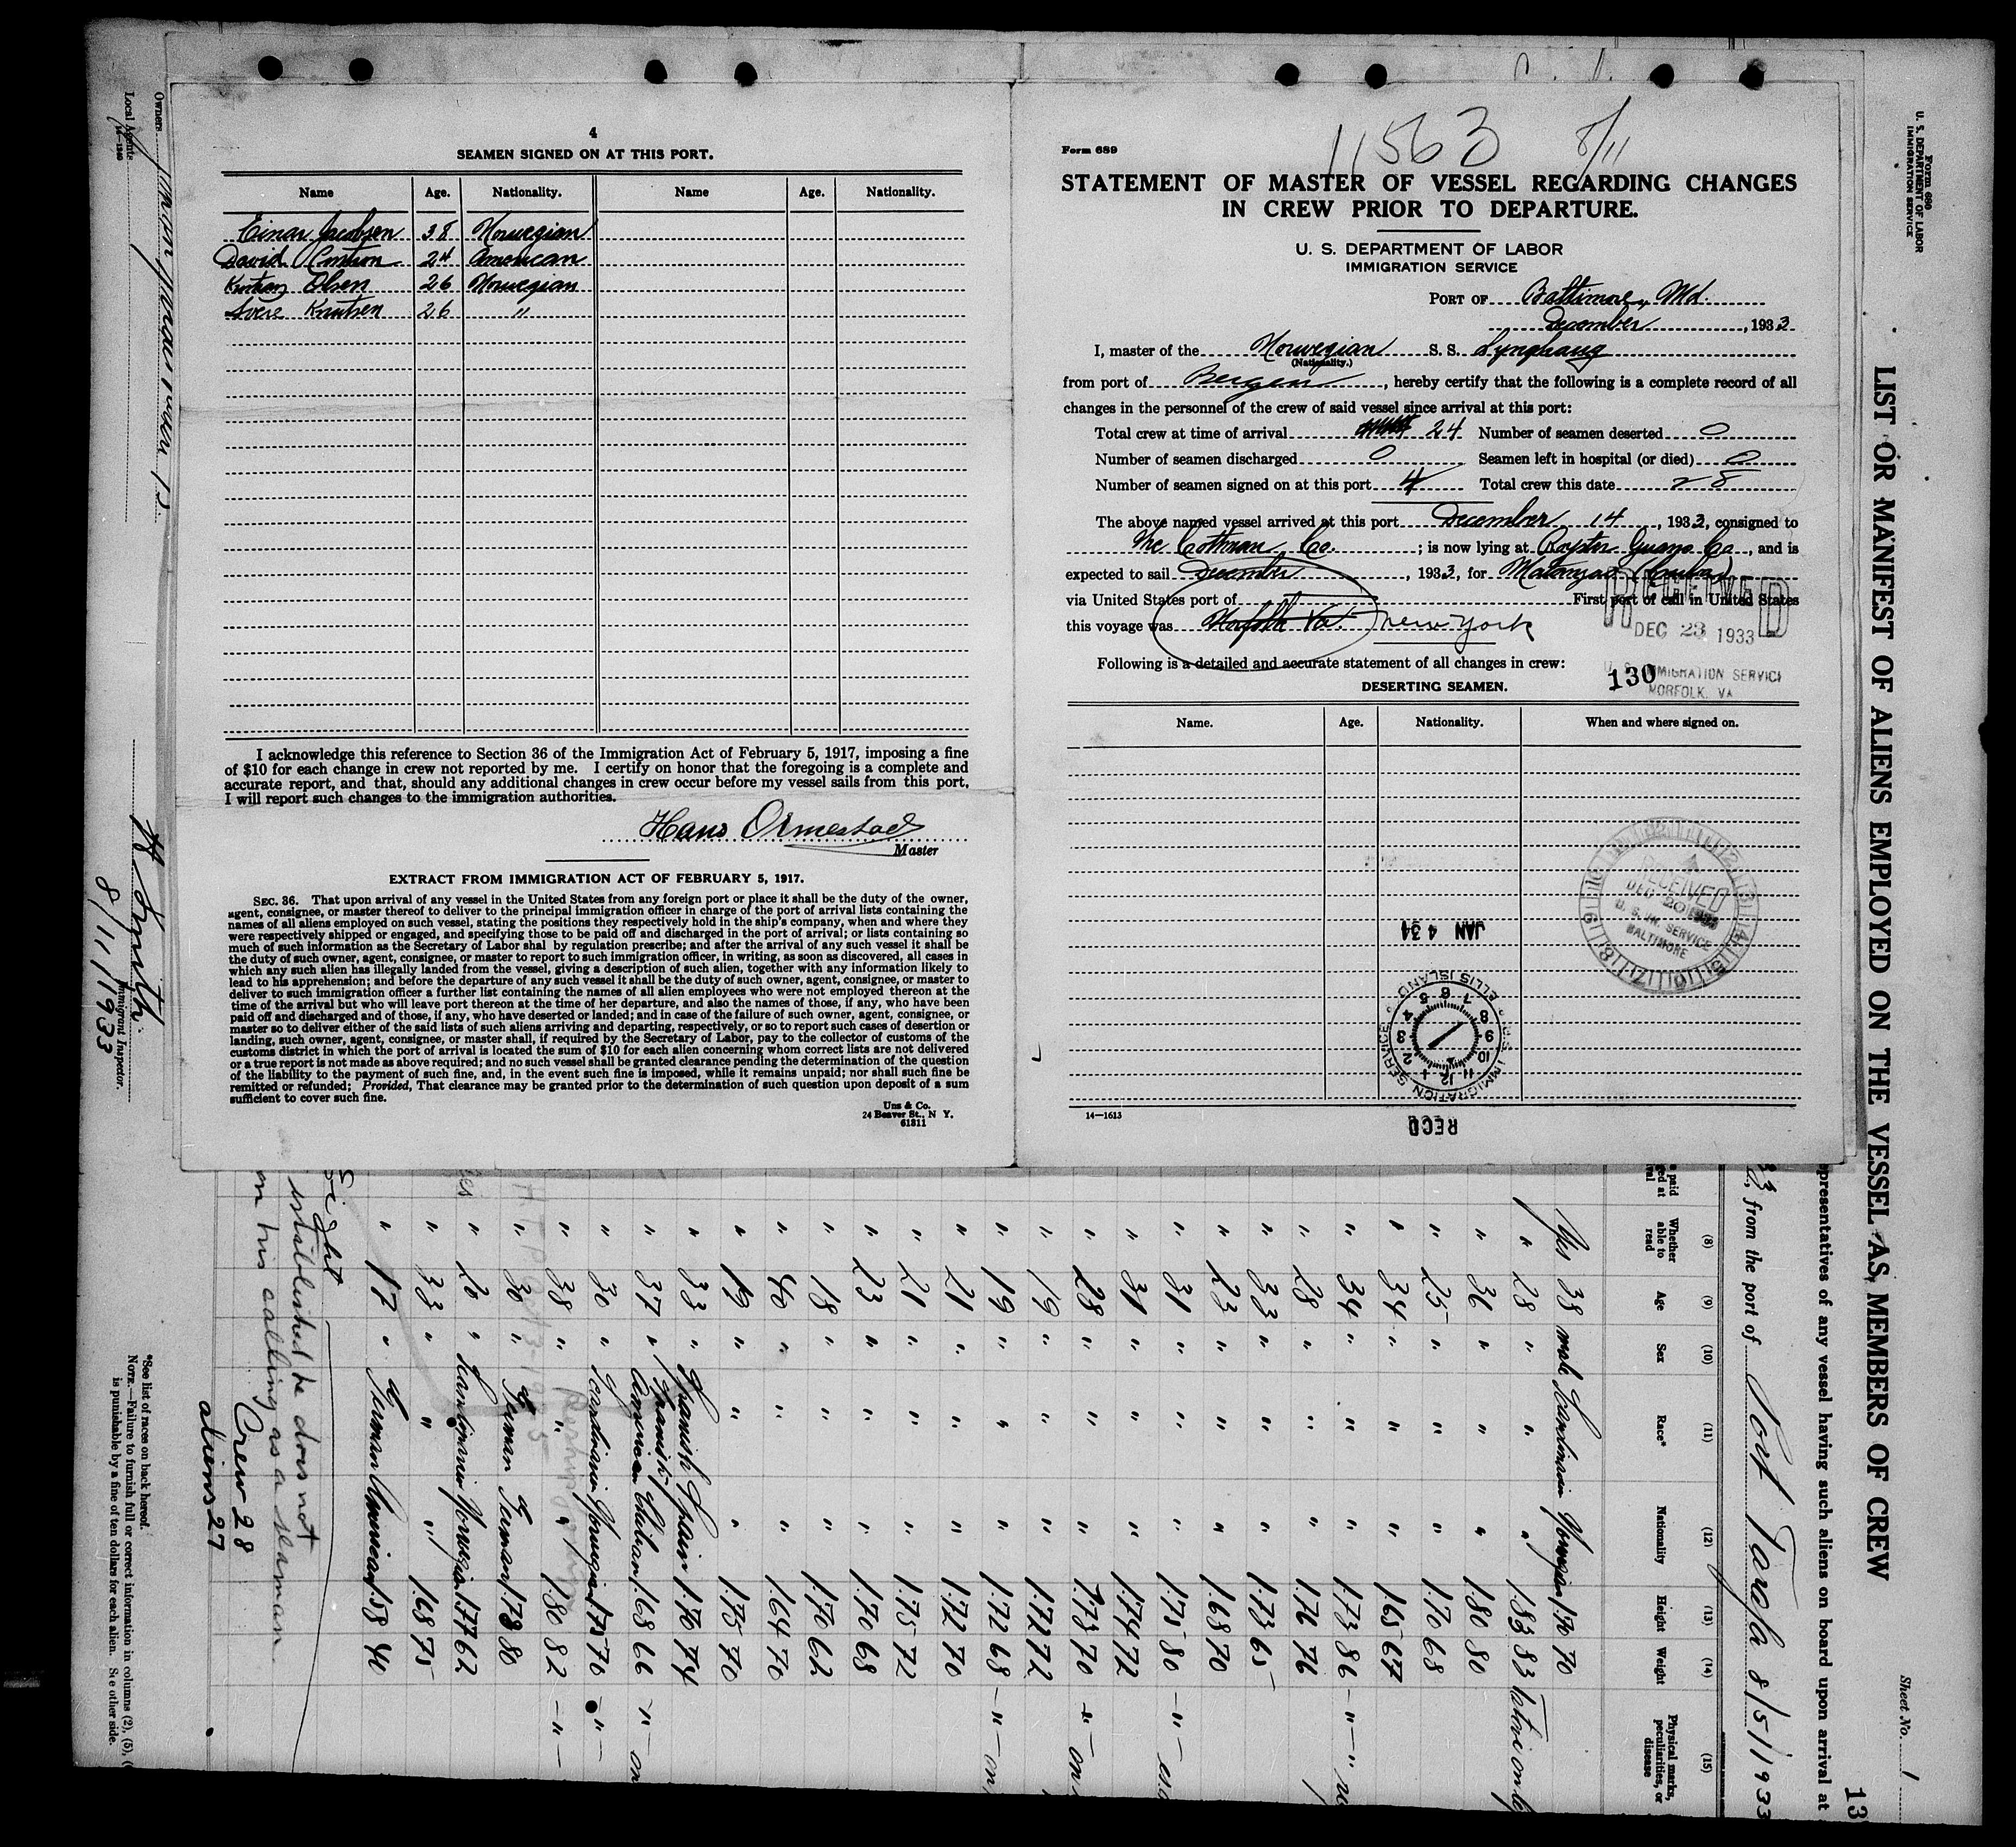 4
SEAMEN SIGNED ON AT THIS PORT.
Name Age. Nationality. Name Age. Nationality.
Einar Jacobsen 38 Norwegian
David 24 American
Olsen 26 Norwegian
Knutsen 26 "
I acknowledge this reference to Section 36 of the Immigration Act of February 5, 1917, imposing a fine
of $10 for each change in crew not reported by me. I certify on honor that the foregoing is a complete and
accurate report, and that, should any additional changes in crew occur before my vessel sails from this port,
I will report such changes to the immigration authorities.
Hans Ormestad
Master
EXTRACT FROM IMMIGRATION ACT OF FEBRUARY 5, 1917.
SEC. 36. That upon arrival of any vessel in the United States from any foreign port or place it shall be the duty of the owner,
agent, consignee, or master thereof to deliver to the principal immigration officer in charge of the port of arrival lists containing the
names of all aliens employed on such vessel, stating the positions they respectively hold in the ship's company, when and where they
were respectively shipped or engaged, and specifying those to be paid off and discharged in the port of arrival; or lists containing so
much of such information as the Secretary of Labor shal by regulation prescribe; and after the arrival of any such vessel it shall be
the duty of such owner, agent, consignee, or master to report to such immigration officer, in writing, as soon as discovered, all cases in
which any such alien has illegally landed from the vessel, giving a description of such alien, together with any information likely to
lead to his apprehension; and before the departure of any such vessel it shall be the duty of such owner, agent, consignee, or master to
deliver to such immigration officer a further list containing the names of all alien employees who were not employed thereon at the
time of the arrival but who will leave port thereon at the time of her departure, and also the names of those, if any, who have been
paid off and discharged and of those, if any, who have deserted or landed; and in case of the failure of such owner, agent, consignee, or
master so to deliver either of the said lists of such aliens arriving and departing, respectively, or so to report such cases of desertion or
landing, such owner, agent, consignee, or master shall, if required by the Secretary of Labor, pay to the collector of customs of the
customs district in which the port of arrival is located the sum of $10 for each alien concerning whom correct lists are not delivered
or a true report is not made as above required; and no such vessel shall be granted clearance pending the determination of the question
of the liability to the payment of such fine, and, in the event such fine is imposed, while it remains unpaid; nor shall such fine be
remitted or refunded; Provided, That clearance may be granted prior to the determination of such question upon deposit of a sum
sufficient to cover such fine.
Uns & Co.
24 Beaver St., N Y.
61311
11563 8/11
Form 689
STATEMENT OF MASTER OF VESSEL REGARDING CHANGES
IN CREW PRIOR TO DEPARTURE.
U. S. DEPARTMENT OF LABOR
IMMIGRATION SERVICE
PORT OF Baltimore, Md.
December, 1933
I, master of the Norwegian S. S. Lynghaug
(Nationality.)
from port of Bergen, hereby certify that the following is a complete record of all
changes in the personnel of the crew of said vessel since arrival at this port:
Total crew at time of arrival 24 Number of seamen deserted 0
Number of seamen discharged 0 Seamen left in hospital (or died) 0
Number of seamen signed on at this port 4 Total crew this date 28
The above named vessel arrived at this port December 14, 1933, consigned to
Mc Cothman Co.; is now lying at Royster Guano Co, and is
expected to sail December, 1933, for Matanzas (Cuba)
via United States port of First port of call in United States
this voyage was Norfolk Va. New York
RECEIVED
DEC 23 1933
U. S. IMMIGRATION SERVICE
NORFOLK, VA
130
Following is a detailed and accurate statement of all changes in crew:
DESERTING SEAMEN.
Name. Age. Nationality. When and where signed on.
RECEIVED
DEC 20 1933
U. S. IM. SERVICE
BALTIMORE
JAN 4 34
ELLIS ISLAND
IMMIGRATION SERVICE
RECD
14—1613
Form 680
U. S. DEPARTMENT OF LABOR
IMMIGRATION SERVICE
LIST OR MANIFEST OF ALIENS EMPLOYED ON THE VESSEL AS MEMBERS OF CREW
Sheet No. 1
13
epresentatives of any vessel having such aliens on board upon arrival at
33, from the port of Port Tarafa 8/5/1933
(8) (9) (10) (11) (12) (13) (14) (15)
Whether able to read Age Sex Race* Nationality Height Weight Physical marks, peculiarities, or disease
Yes 38 male Scandinavian Norwegian 1.70 70
" 28 " " " 1.83 83
" 36 " " " 1.80 80
" 25 " " " 1.70 68
" 34 " " " 1.65 67
" 34 " " " 1.73 86
" 28 " " " 1.76 76
" 33 " " " 1.73 65
" 23 " " " 1.68 70
" 31 " " " 1.75 80
" 31 " " " 1.74 72
" 28 " " " 1.73 70
" 19 " " " 1.72 72
" 19 " " " 1.72 68
" 21 " " " 1.72 70
" 21 " " " 1.75 72
" 23 " " " 1.70 68
" 18 " " " 1.70 62
" 40 " " " 1.64 70
" 19 " " " 1.75 70
" 33 " Spanish Spain 1.76 74
" 37 " Spanish American Chilian 1.68 66
" 30 " Scandinavian Norwegian 1.75 70
" 38 " " " 1.80 82
" 30 " German German 1.78 80
" 20 " Scandinavian Norwegian 1.77 62
" 33 " " " 1.68 75
" 17 " German American 1.58 40
Sight
established he does not
on his calling as a seaman.
Crew 28
aliens 27
*See list of races on back hereof.
NOTE.—Failure to furnish full or correct information in columns (2), (5), (
is punishable by a fine of ten dollars for each alien. See other side.
Owners
Local Agents
14—1240
H Smith
Immigrant Inspector.
8/11/1933